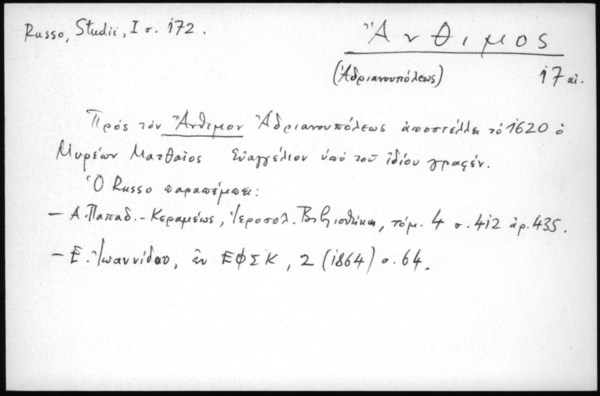 Russo, Studii, I σ. 172.
Ἄνθιμος
(Ἀδριανουπόλεως)
17 αἰ.
Πρὸς τὸν Ἄνθιμον Ἀδριανουπόλεως ἀποστέλλει τὸ 1620 ὁ
Μυρέων Ματθαῖος Εὐαγγέλιον ὑπὸ τοῦ ἰδίου γραφέν.
Ὁ Russo παραπέμπει:
– Α. Παπαδ.-Κεραμέως, Ἱεροσολ. Βιβλιοθήκη, τόμ. 4 σ. 412 ἀρ. 435.
– Ε. Ἰωαννίδου, ἐν ΕΦΣΚ, 2 (1864) σ. 64.